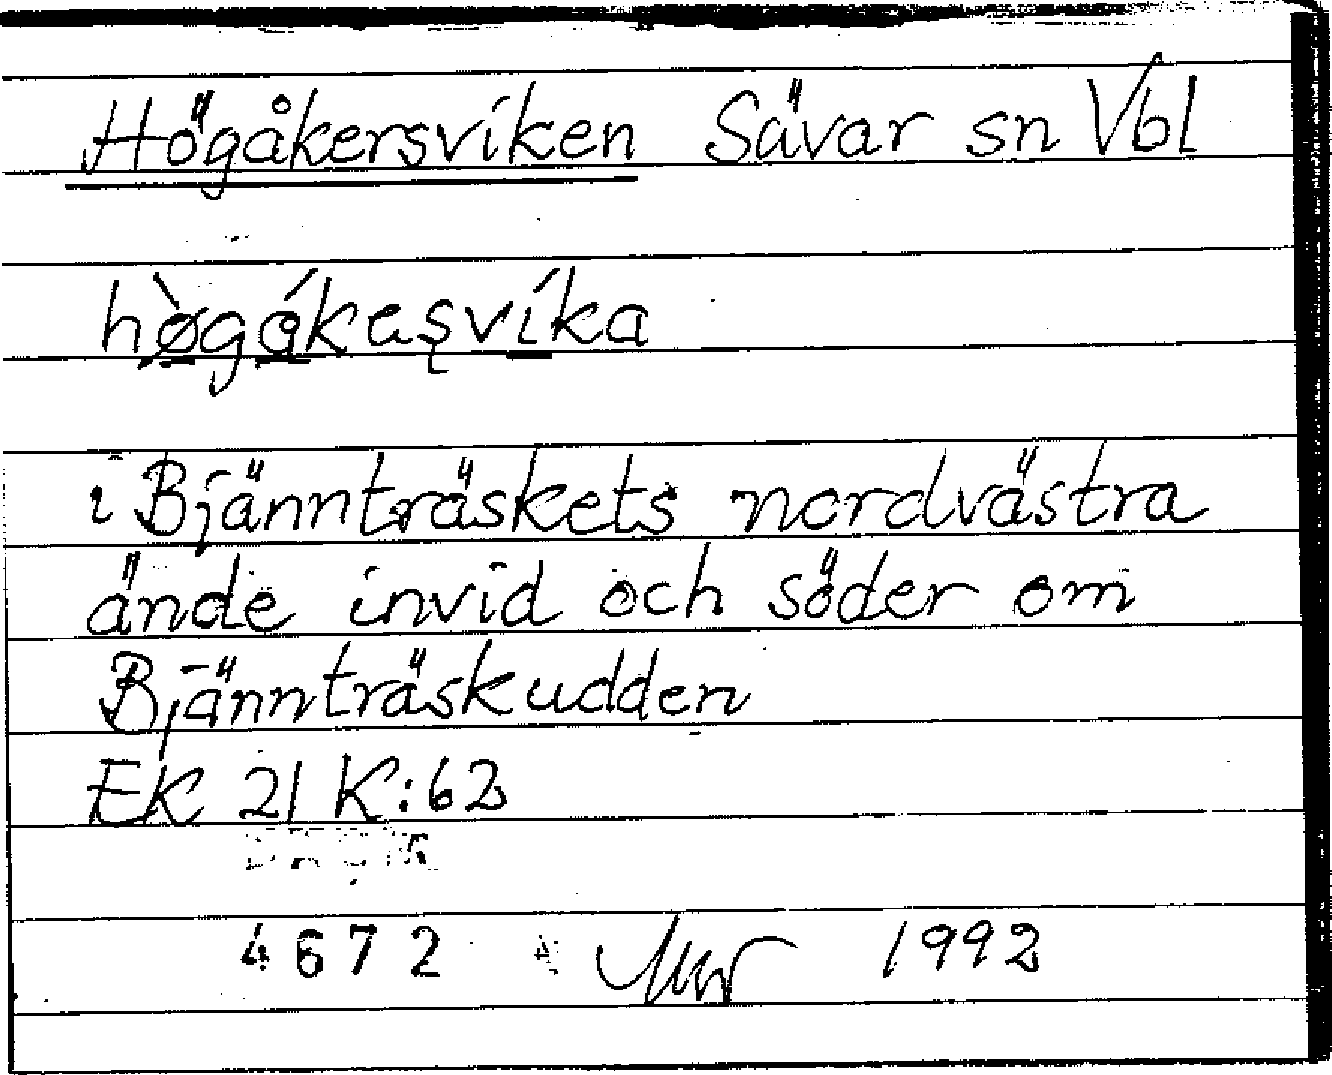 Högåkersviken Sävar sn Vbl
hø̀gåkas̨víka
i Bjännträskets nordvästra
ände invid och söder om
Bjännträskudden
EK 21 K:62
4672 1992